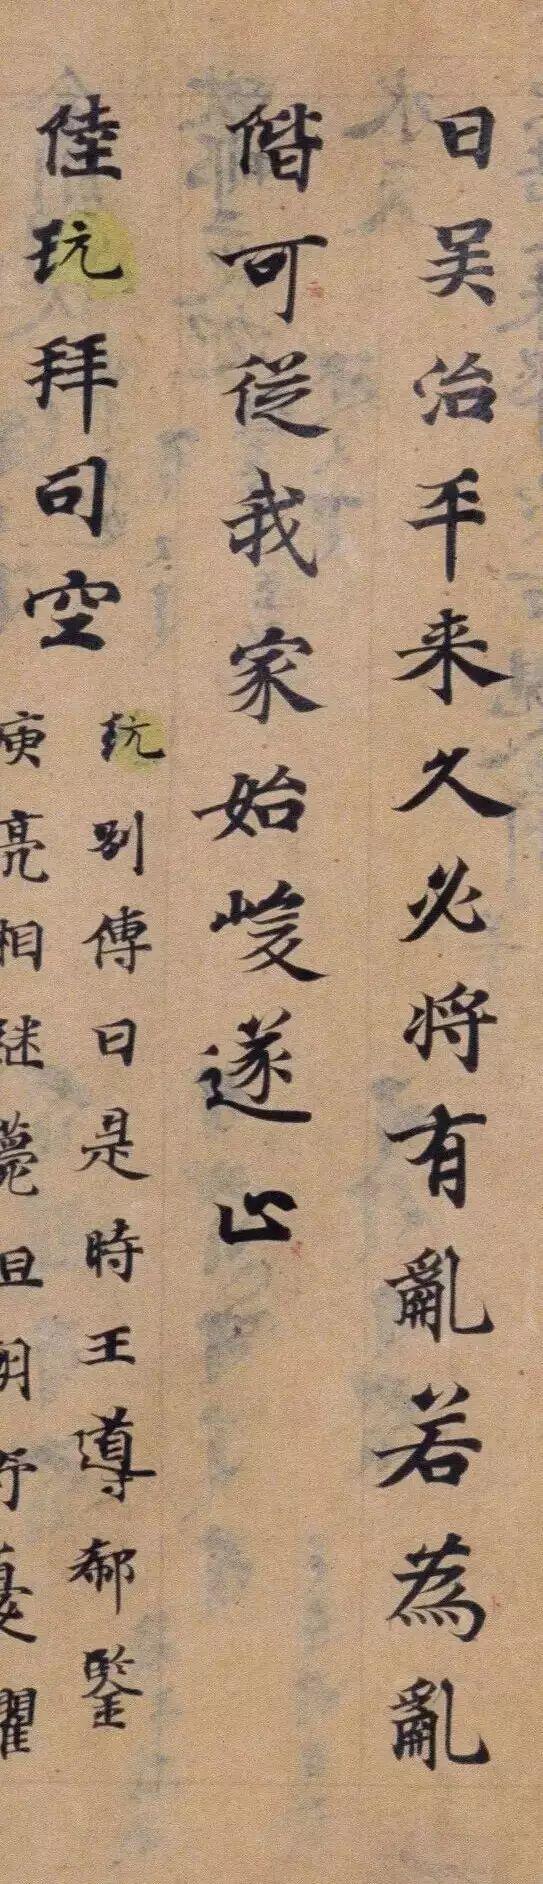 曰吴治平来久必将有亂若為亂
階可從我家始峻遂止
陸玩拜司空
玩別傳曰是時王導郗鑒
庾亮相継薨殂朝野憂懼